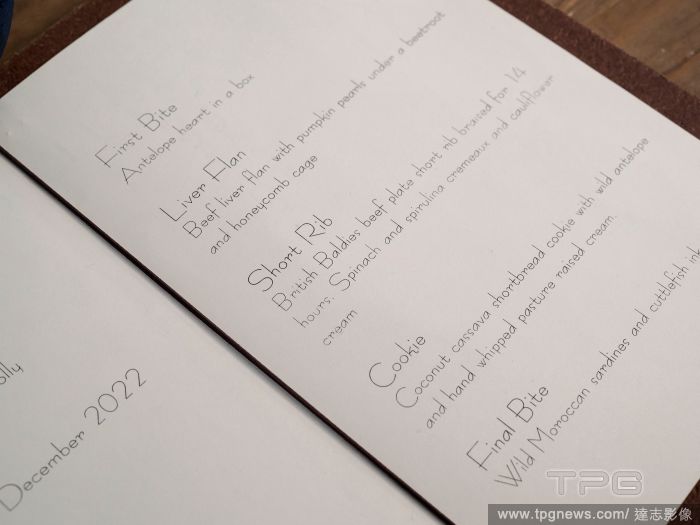 olly
December 2022
First Bite
Antelope heart in a box
Liver Flan
Beef liver flan with pumpkin pearls under a beetroot
and honeycomb cage
Short Rib
British Baldies beef plate short rib braised for 14
hours. Spinach and spirulina cremeaux and cauliflower
cream
Cookie
Coconut cassava shortbread cookie with wild antelope
and hand whipped pasture raised cream.
Final Bite
Wild Moroccan sardines and cuttlefish ink
TPG
www.tpgnews.com/ 達志影像